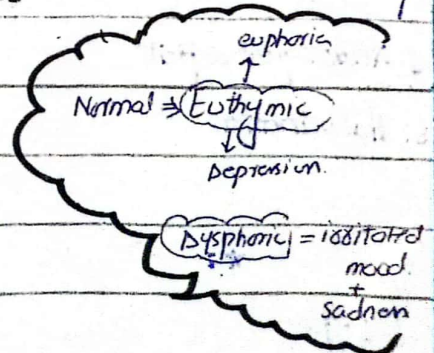 euphoria
↑
Normal ⇒ Euthymic
↓
Depression.
Dysphoric = irritated
mood
+
Sadness